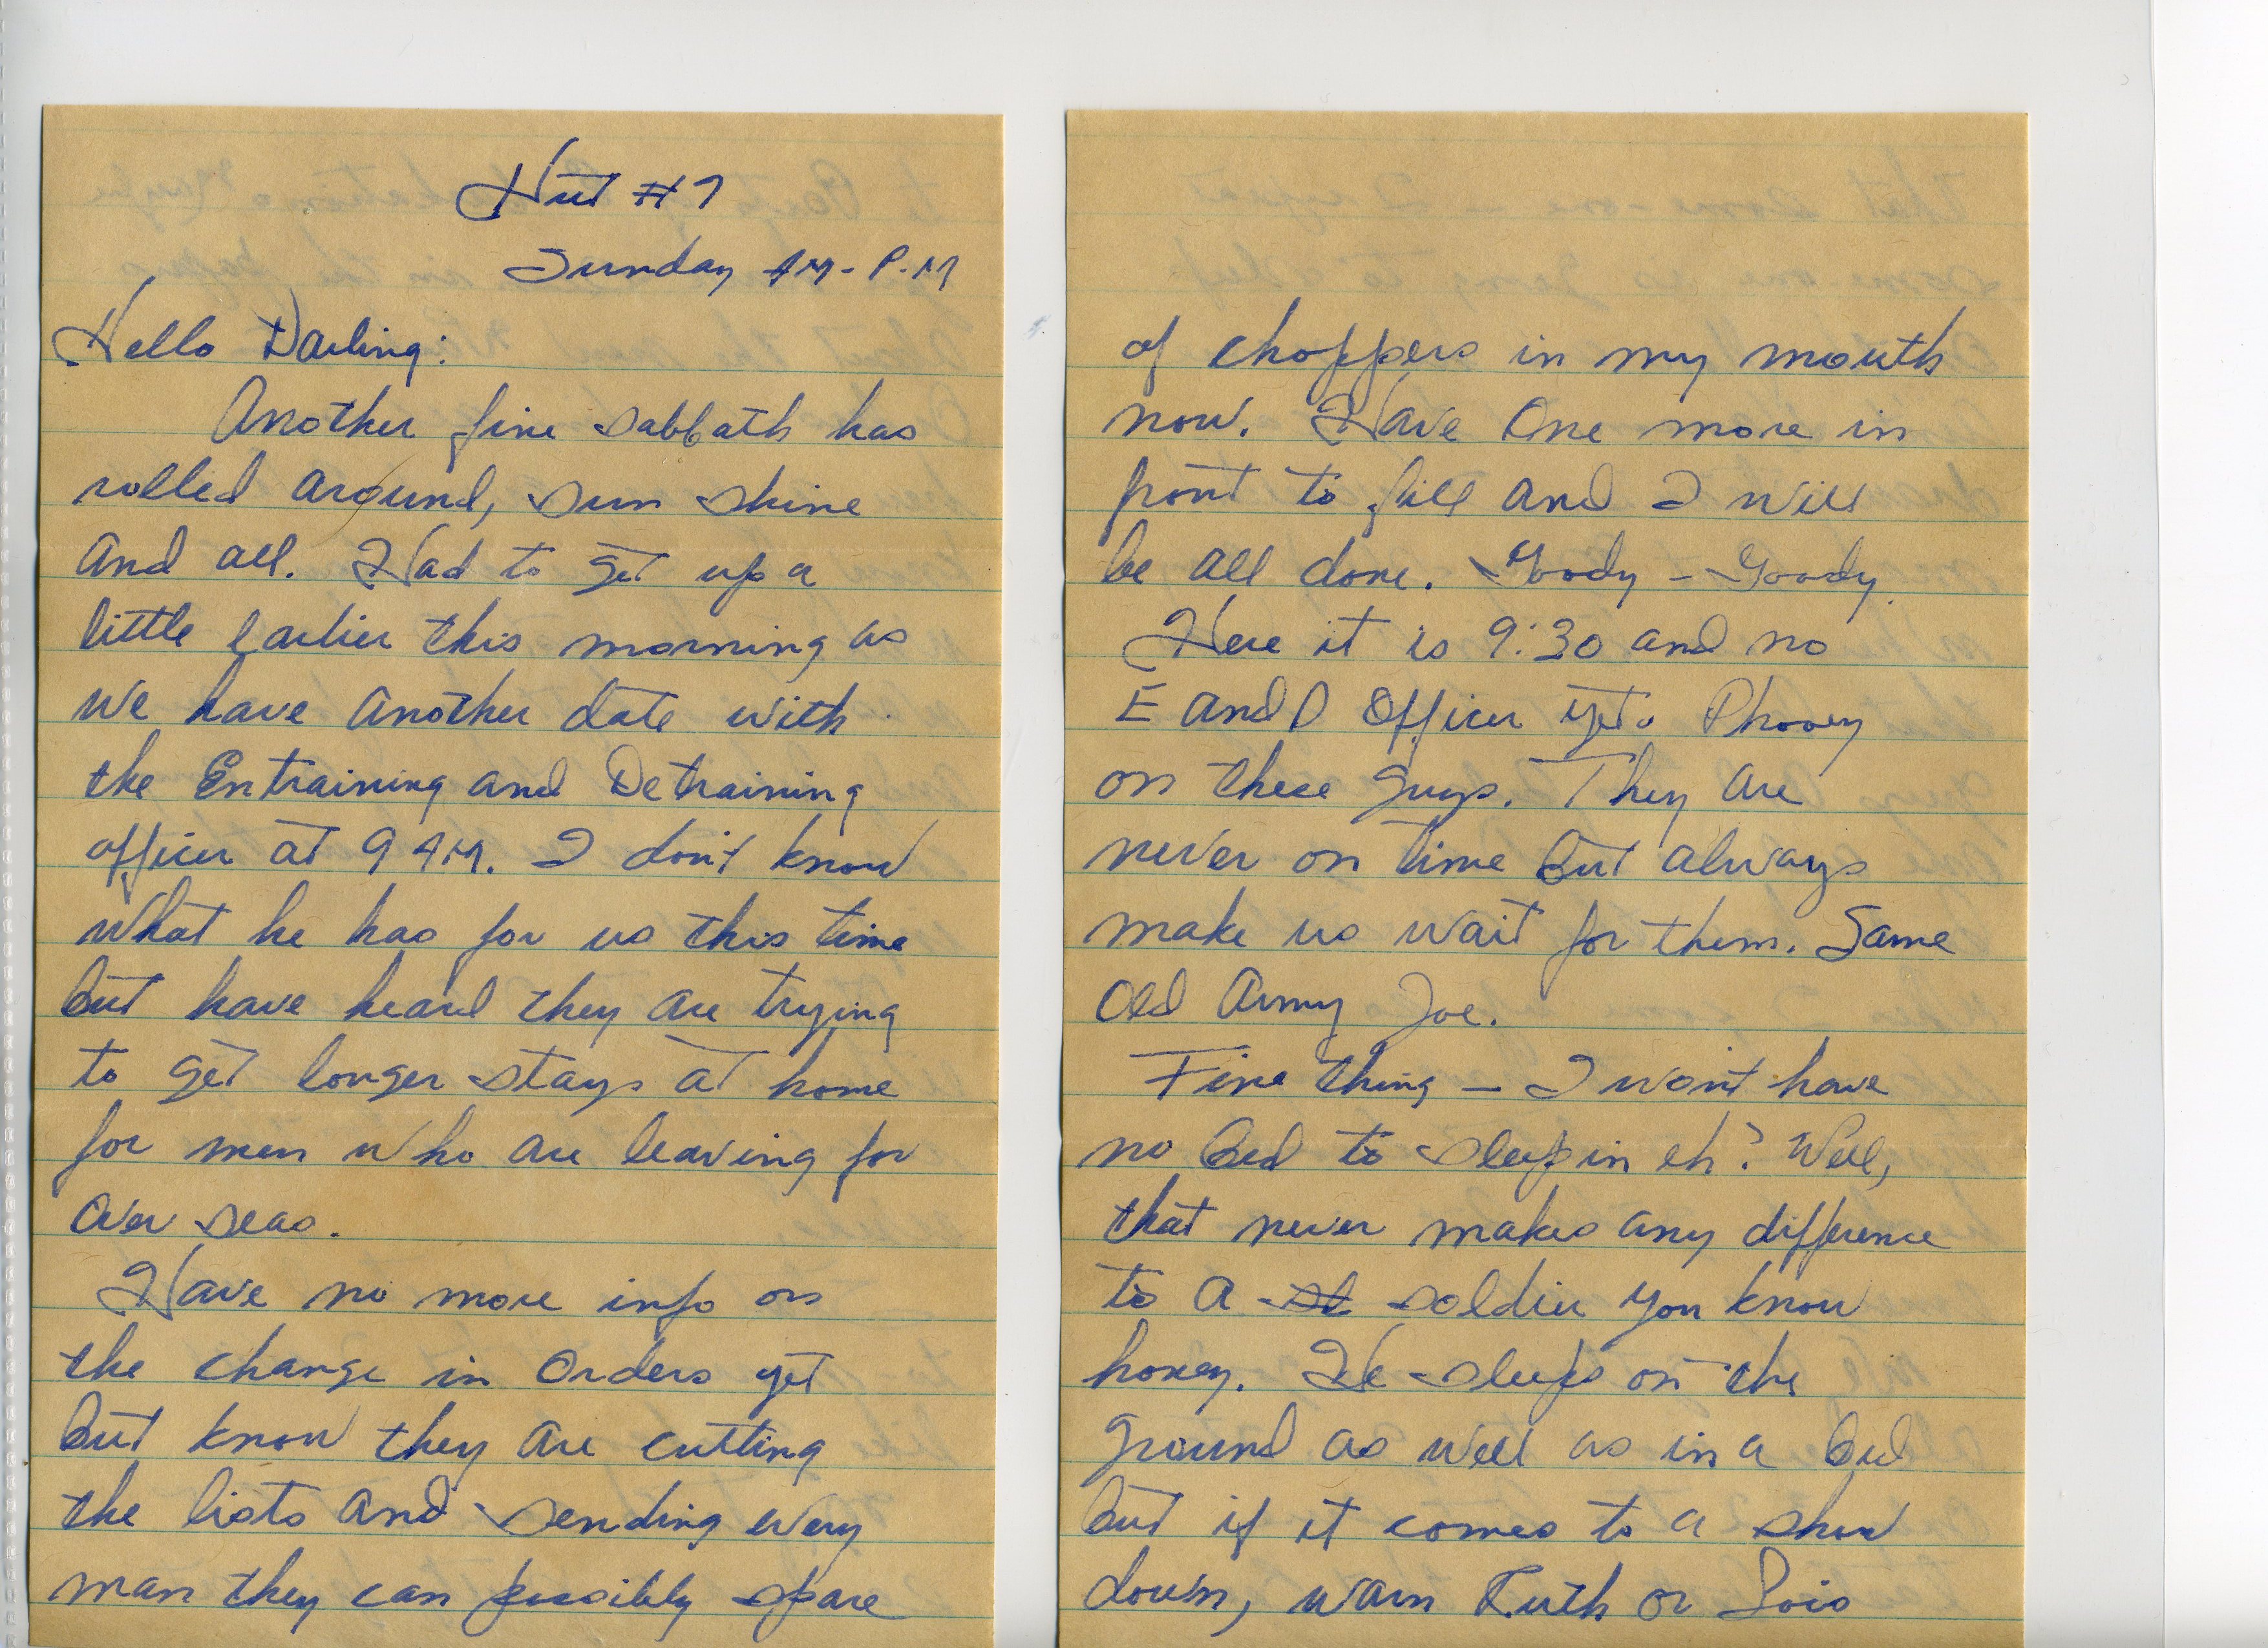 Hut #7
Sunday AM - P.M
Hello Darling:
Another fine sabbath has
rolled around, sun shine
and all. Had to get up a
little earlier this morning as
we have another date with
the Entraining and Detraining
officer at 9 AM. I don't know
what he has for us this time
but have heard they are trying
to get longer stays at home
for men who are leaving for
over seas.
Have no more info on
the change in orders yet
but know they are cutting
the lists and sending every
man they can possibly spare
of choppers in my mouth
now. Have one more in
front to fill and I will
be all done. Goody - Goody.
Here it is 9:30 and no
E and D Officer yet. Phooey
on these guys. They are
never on time but always
make us wait for them. Same
old Army Joe.
Fine thing - I won't have
no bed to sleep in eh? Well,
that never makes any difference
to a st soldier you know
honey. He sleeps on the
ground as well as in a bed
but if it comes to a show
down, warn Ruth or Lois